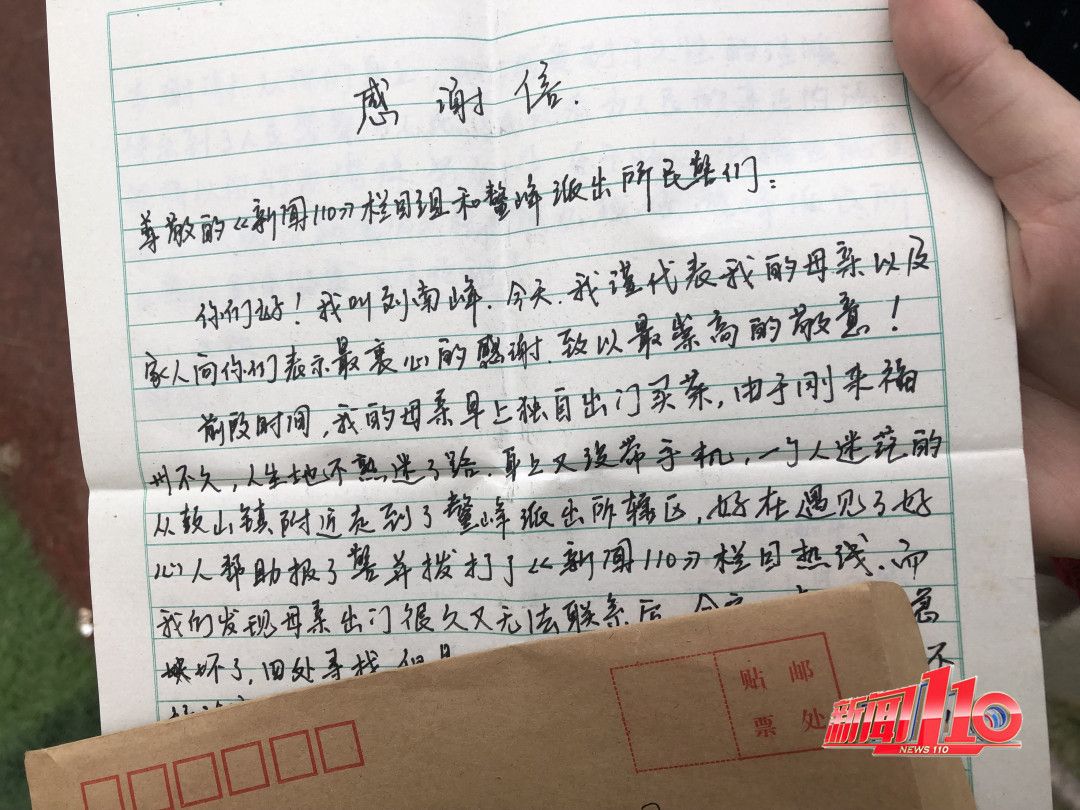 感谢信.
尊敬的《新闻110》栏目组和鳌峰派出所民警们：
你们好！我叫刘南峰．今天．我谨代表我的母亲以及
家人向你们表示最衷心的感谢．致以最崇高的敬意！
前段时间，我的母亲早上独自出门买菜，由于刚来福
州不久，人生地不熟迷了路．身上又没带手机，一个人迷茫的
从鼓山镇附近走到了鳌峰派出所辖区，好在遇见了好
心人帮助报了警并拨打了《新闻110》栏目热线．而
我们发现母亲出门很久又无法联系后
坏了，四处寻找
不
贴 邮
票 处
新闻110
NEWS 110